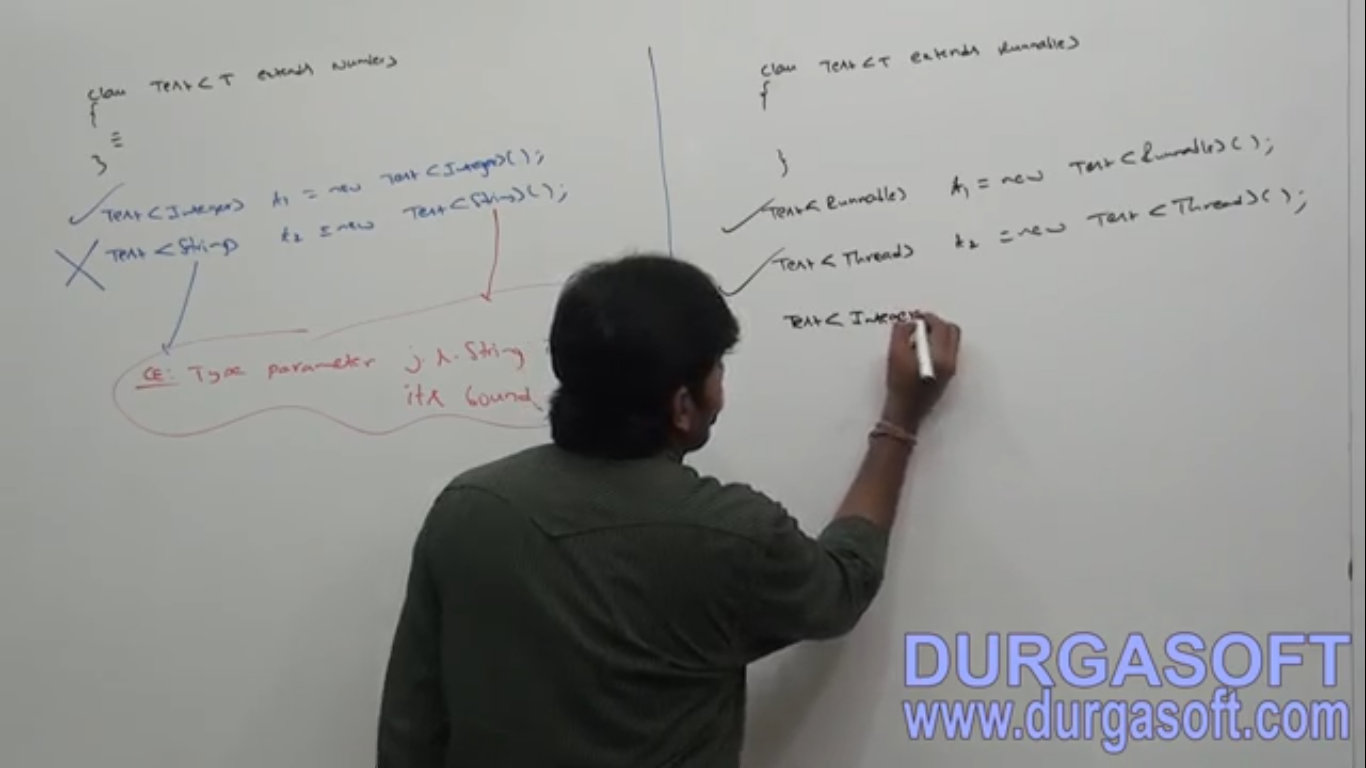 class Test<T extends Number>
{
≡
}
Test<Integer> t1 = new Test<Integer>();
Test<String> t2 = new Test<String>();
CE: Type parameter j.l.String
its bound
class Test<T extends Runnable>
{
}
Test<Runnable> t1 = new Test<Runnable>();
Test<Thread> t2 = new Test<Thread>();
Test<Integer
DURGASOFT
www.durgasoft.com